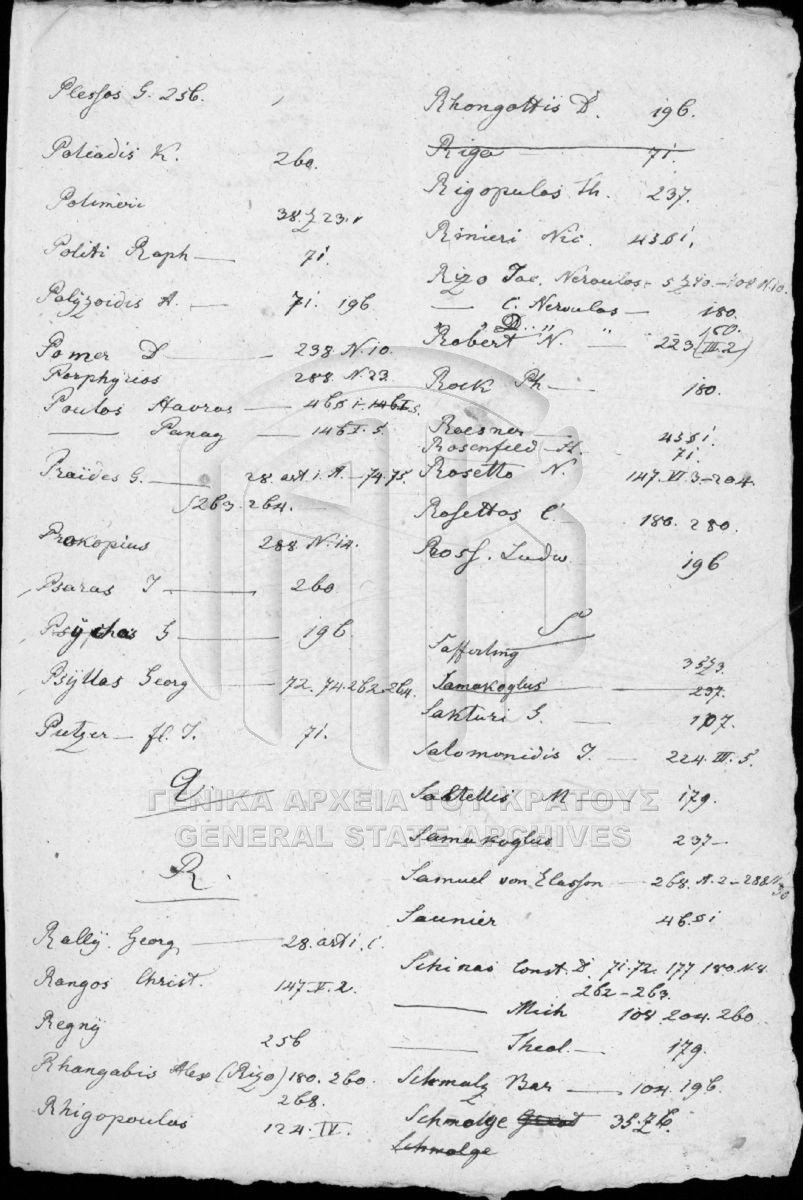 Plessos G. 256.
Poliadis K. 260.
Polimeri 38. § 23.
Politi Raph — 71.
Polyzoidis A. — 71. 196
Pomer D — 238 N. 10.
Porphyrios 288. N. 23.
Poulos Stavros — 46 § 1.
— Panag — 146 I. 5.
Praïdes G. — 28. art. 1. A. — 74. 75.
263. 264.
Prokopius 288. N. 14.
Psaras J — 260
Psÿchas G — 196.
Psÿllas Georg — 72. 74. 262. 264.
Putzer — fl. J. 71.
Q
R.
Rallÿ. Georg — 28. art 1. C.
Rangos Christ. 147. V. 2.
Regnÿ 256
Rhangabis Alex (Rizo) 180. 260.
268.
Rhigopoulos 124. IV.
Rhongottis D. 196.
Riga — 71.
Rigopulos Th. 237.
Rinieri Nic. 43 § 1.
Rizo Jac. Neroulos — 5 § 40. — 108 N. 10.
— C. Neroulos — 180.
„ D. „ „ 180.
Robert N. — 223 (III. 2)
Rock Ph — 180.
Roesner 43 § 1.
Rosenfeld H. 71.
Rosetto N. 147. VI. 3 — 204.
Rosettos C. — 180. 280.
Ross. Ludw 196
S
Safferling 35 § 3.
Samakoglus — 237.
Sakturi G. — 107.
Salomonidis J. — 224. III. 5.
Saltellis M — 179.
ΓΕΝΙΚΑ ΑΡΧΕΙΑ ΤΟΥ ΚΡΑΤΟΥΣ
GENERAL STATE ARCHIVES
Samakoglus 237 —
Samuel von Elasson — 268. N. 2 — 288 N. 30
Saunier 46. § 1
Schinas Const. D. 71. 72. 177 180. N. 8.
262 — 263.
— Mich 108. 204. 260.
— Theol. — 179.
Schmalz Bar — 104. 196.
Schmolge 35. § 6.
Schmolge